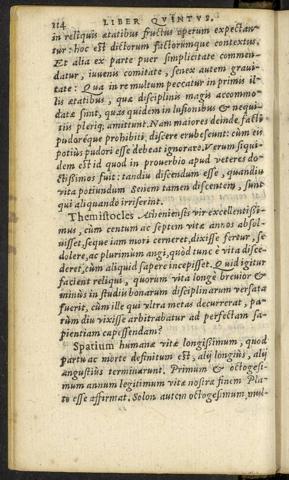 114 LIBER QVINTVS.
in reliquis ætatibus fructus operum expectan-
tur: hoc est dictorum factorumque contextus.
Et alia ex parte puer simplicitate commen-
datur, iuuenis comitate, senex autem graui-
tate: Qua in re multum peccatur in primis il-
lis ætatibus, quæ disciplinis magis accommo-
datæ sint, quas quidem in lusionibus & nequi-
tiis pleriq; amittunt. Nam maiores deinde facti
pudoréque prohibiti, discere erubescunt: cùm eis
potiùs pudori esse debeat ignorare. Verùm siqui-
dem est id quod in prouerbio apud veteres do-
ctißimos fuit: tandiu discendum esse, quandiu
vita potiundum Senem tamen discentem, sunt
qui aliquando irriserint.
Themistocles Atheniensis vir excellentißi-
mus, cùm centum ac septem vitæ annos absol-
uisset, seque iam mori cerneret, dixisse fertur, se
dolere, ac plurimum angi, quòd tunc è vita disce-
deret, cùm aliquid sapere incepisset. Quid igitur
facient reliqui, quorum vita longè breuior &
minùs in studiis bonarum disciplinarum versata
fuerit, cùm ille qui vltra metas decurrerat, pa-
rùm diu vixisse arbitrabatur ad perfectam sa-
pientiam capessendam?
Spatium humanæ vitæ longißimum, quod
partu ac morte definitum est, alij longiùs, alij
angustiùs terminarunt. Primum & octogesi-
mum annum legitimum vitæ nostræ finem Pla-
to esse affirmat. Solon autem octogesimum, mul-